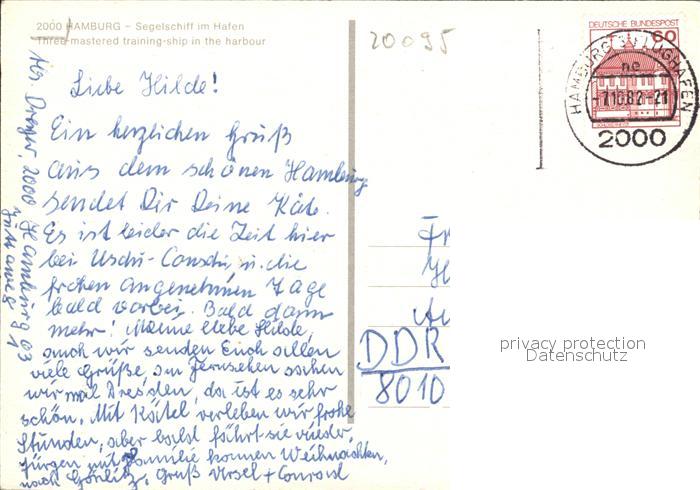 2000 HAMBURG – Segelschiff im Hafen
Three-mastered training-ship in the harbour
20095
DEUTSCHE BUNDESPOST
60
HAMBURG FLUGHAFEN
-7.10.82-21
2000
Liebe Hilde!
Ein herzlichen Gruß
aus dem schönen Hamburg
sendet Dir Deine Käte.
Es ist leider die Zeit hier
bei Uschi-Conadi, u. die
frohen angenehmen Tage
bald vorbei. Bald dann
mehr! Meine liebe Hilde,
auch wir senden Euch allen
viele Grüße, im Fernsehen sahen
wir mal Dresden, da ist es sehr
schön. Mit Kätel verleben wir frohe
Stunden, aber bald fährt sie wieder.
Jürgen mit Familie kommen Weihnachten,
nach Görlitz, Gruß Ursel + Conrad
Abs. Dreyer, 2000 Hamburg 63
DDR
8010
privacy protection
Datenschutz